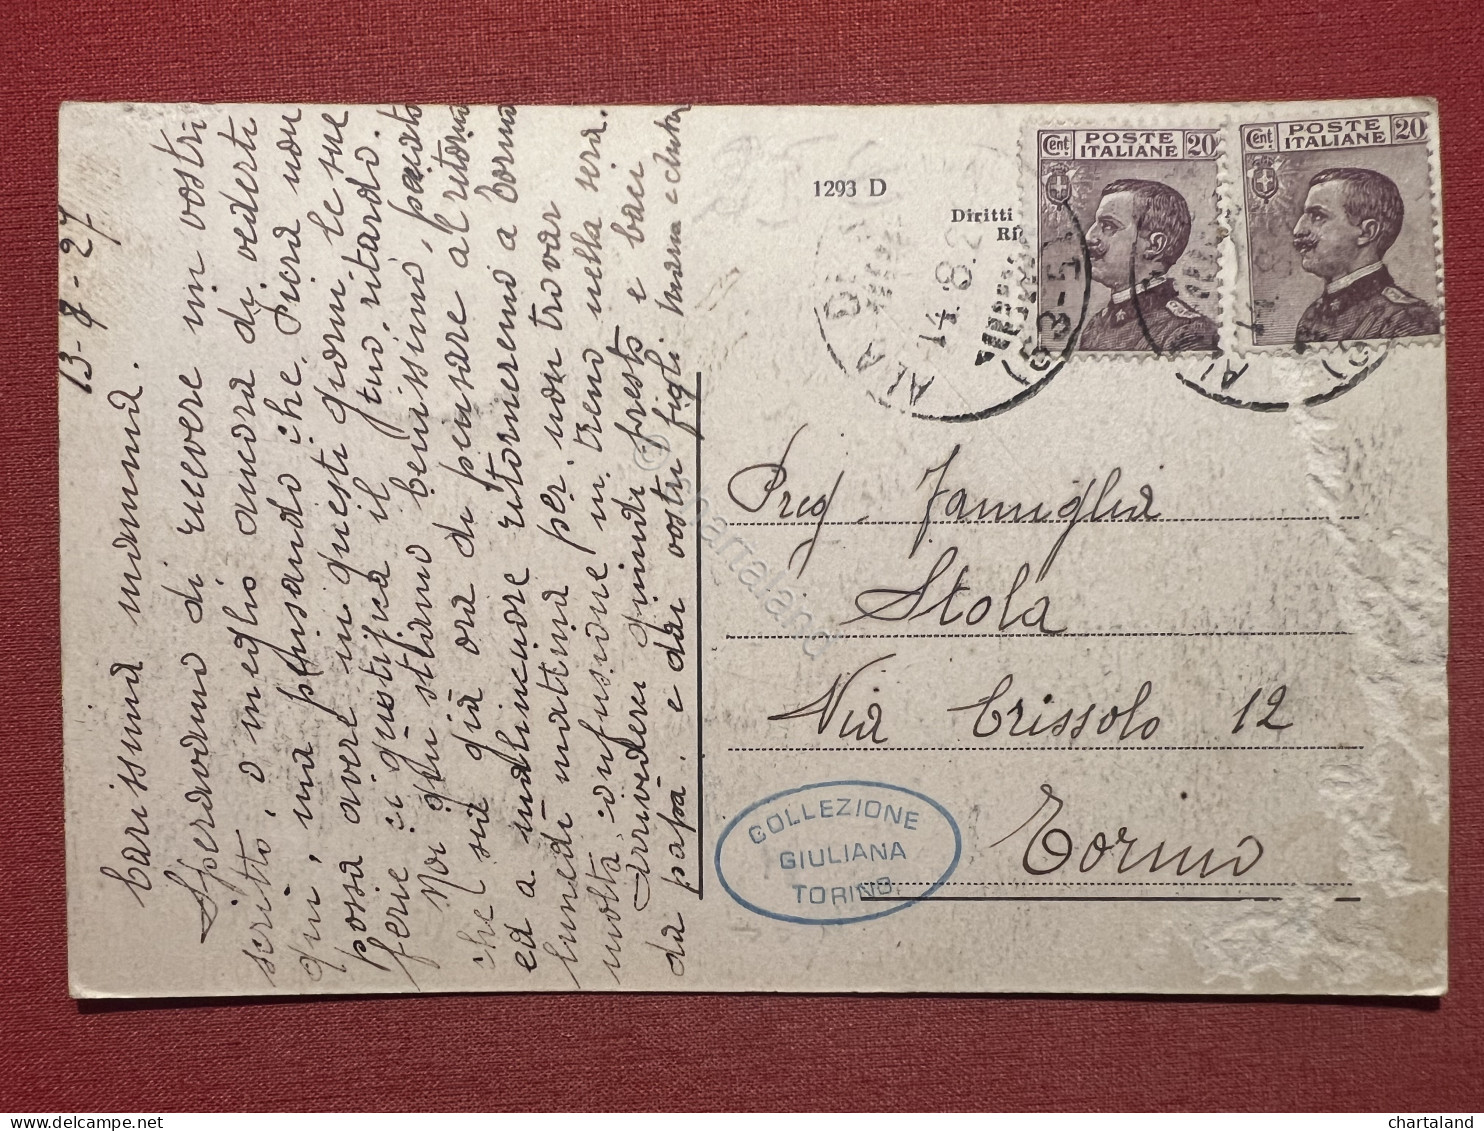 13-8-27
Carissima mamma.
Speravamo di ricevere un vostri
scritto, o meglio ancora di vederti
qui, ma pensando che Piera non
possa avere in questi giorni le sue
ferie ci giustifica il tuo ritardo.
Noi qui stiamo benissimo, peccato
che sia già ora di pensare al ritorno
ed a malincuore ritorneremo a Torino
lunedì mattina per non trovar
molta confusione in treno nella sera.
Arrivederci quindi presto e baci
da papà. e dai vostri figli.
1293 D
Diritti
Ri
POSTE
ITALIANE
Cent. 20
POSTE
ITALIANE
Cent. 20
ALA DI
14.8.2
Preg. Famiglia
Stola
Via Crissolo 12
Torino
COLLEZIONE
GIULIANA
TORINO
© cartaland
chartaland